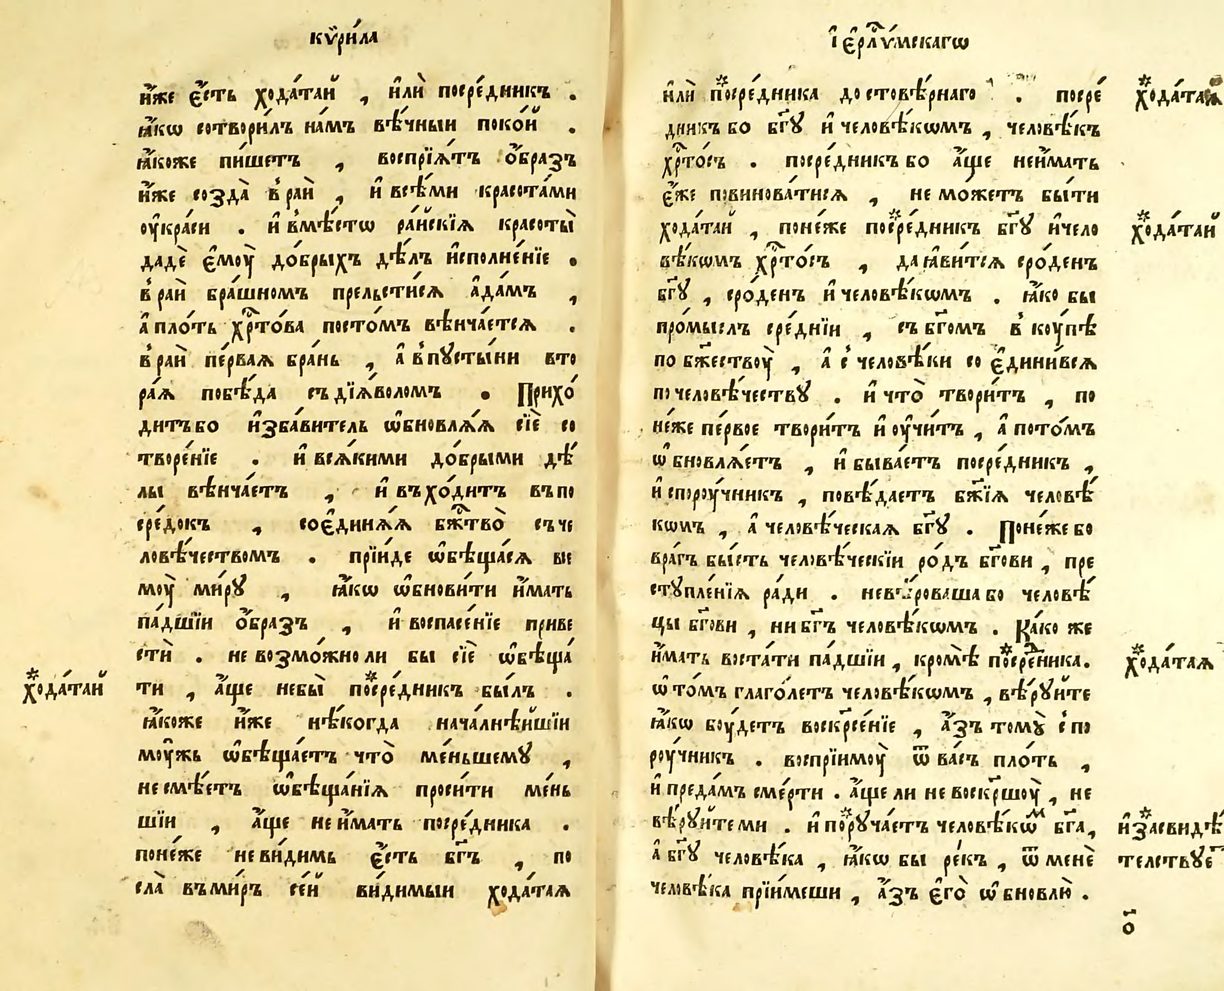 кѷ́рила
и҆́же є҆́сть хода́тай , и҆лѝ посре́дникъ .
ꙗ҆́кѡ сотвори́лъ на́мъ вѣ́чныи поко́й .
ꙗ҆́коже пи́шетъ , воспрїѧ́тъ ѻ҆́браꙁъ
и҆́же соꙁда̀ в̾ ра́й , и҆ все́ми красота́ми
ᲂу҆красѝ . и҆ в̾мѣ́стѡ ра́йскїѧ красоты̀
дадѐ є҆мꙋ̀ до́брыхъ дѣ́лъ и҆сполне́нїе .
в̾ ра́й бра́шномъ прельсти́сѧ а҆да́мъ ,
а҆ пло́ть хрⷭ҇то́ва посто́мъ вѣнча́етсѧ .
в̾ ра́й пе́рваѧ бра́нь , а҆ в̾ пꙋсты́ни вто
ра́ѧ побѣ́да съ дїѧ́воломъ . Прихо́
дитъ бо и҆ꙁба́витель ѡ҆бновлѧ́ѧ сїѐ со
творе́нїе . и҆ всѧ́кими до́брыми дѣ́
лы вѣнча́етъ , и҆ въхо́дитъ въ по
сре́докъ , соєдинѧ́ѧ бж҃тво̀ съ че
лов́ѣчествомъ . прїи́де ѡ҆бѣща́сѧ все
мꙋ̀ ми́рꙋ , ꙗ҆́кѡ ѡ҆бнови́ти и҆́мать
па́дшїи ѻ҆́браꙁъ , и҆ воспасе́нїе приве
стѝ . не воꙁмо́жно ли бы сїѐ ѡ҆бѣща́
ти , а҆́ще не бы̀ посре́дникъ бы́лъ .
хода́тай
ꙗ҆́коже и҆́же нѣ́когда нача́лнѣйшїи
мꙋ́жь ѡ҆бѣща́етъ что̀ ме́ньшемꙋ ,
не смѣ́етъ ѡ҆бѣща́нїѧ проси́ти ме́нь
шїи , а҆́ще не и҆́мать посре́дника .
поне́же неви́димь є҆́сть бг҃ъ , по
сла̀ въ ми́ръ се́й ви́димыи хода́таѧ
і҆ерⷭ҇лѷ́мскагѡ
и҆лѝ посре́дника достовѣ́рнаго . посре́
хода́таѧ
дникъ бо бг҃ꙋ и҆ человѣ́кѡмъ , человѣ́къ
хрⷭ҇то́съ . посре́дникъ бо а҆́ще не и҆́мать
є҆́же повинова́тисѧ , не мо́жетъ бы́ти
хода́тай , поне́же посре́дникъ бг҃ꙋ и҆ чело
хода́тай
вѣ́кѡмъ хрⷭ҇то́съ , да ꙗ҆́витсѧ сро́денъ
бг҃ꙋ , сро́денъ и҆ человѣ́кѡмъ . ꙗ҆́ко бы
про́мыслъ сре́днїи , съ бг҃омъ в̾ кꙋ́пѣ
по бжⷭ҇ествꙋ̀ , а҆ с̾ человѣ́ки со є҆дини́всѧ
по человѣ́честву . и҆ что̀ твори́тъ , по
не́же пе́рвое твори́тъ и҆ ᲂу҆чи́тъ , а҆ пото́мъ
ѡ҆бновлѧ́етъ , и҆ быва́етъ посре́дникъ ,
и҆ спорꙋ́чникъ , повѣ́даетъ бж҃їѧ человѣ́
кѡмъ , а҆ человѣ́ческаѧ бг҃ꙋ . Поне́же бо
вра́гъ бы́сть человѣ́ческїи ро́дъ бг҃ови , пре
стꙋпле́нїѧ ра́ди . невѣ́роваша бо человѣ́
цы бг҃ови , ни бг҃ъ человѣ́кѡмъ . Ка́ко же
и҆́мать воста́ти па́дшїи , кромѣ̀ посре́дника .
хода́таѧ
ѡ҆ то́мъ глаго́летъ человѣ́кѡмъ , вѣ́рꙋйте
ꙗ҆́кѡ бꙋ́детъ воскрⷭ҇се́нїе , а҆́ꙁъ томꙋ̀ с̾по
рꙋ́чникъ . воспрїимꙋ̀ ѿ ва́съ пло́ть ,
и҆ преда́мъ сме́рти . а҆́ще ли не воскрⷭ҇шꙋ̀ , не
вѣ́рꙋйте ми . и҆ порꙋча́етъ человѣ́кѡⷨ бг҃а ,
и҆ꙁасвидѣ́
а҆ бг҃ꙋ человѣ́ка , ꙗ҆́кѡ бы ре́къ , ѿ менѐ
телствꙋеⷮ
человѣ́ка прїи́меши , а҆́ꙁъ є҆го̀ ѡ҆бновлю̀ .
ѻ҃